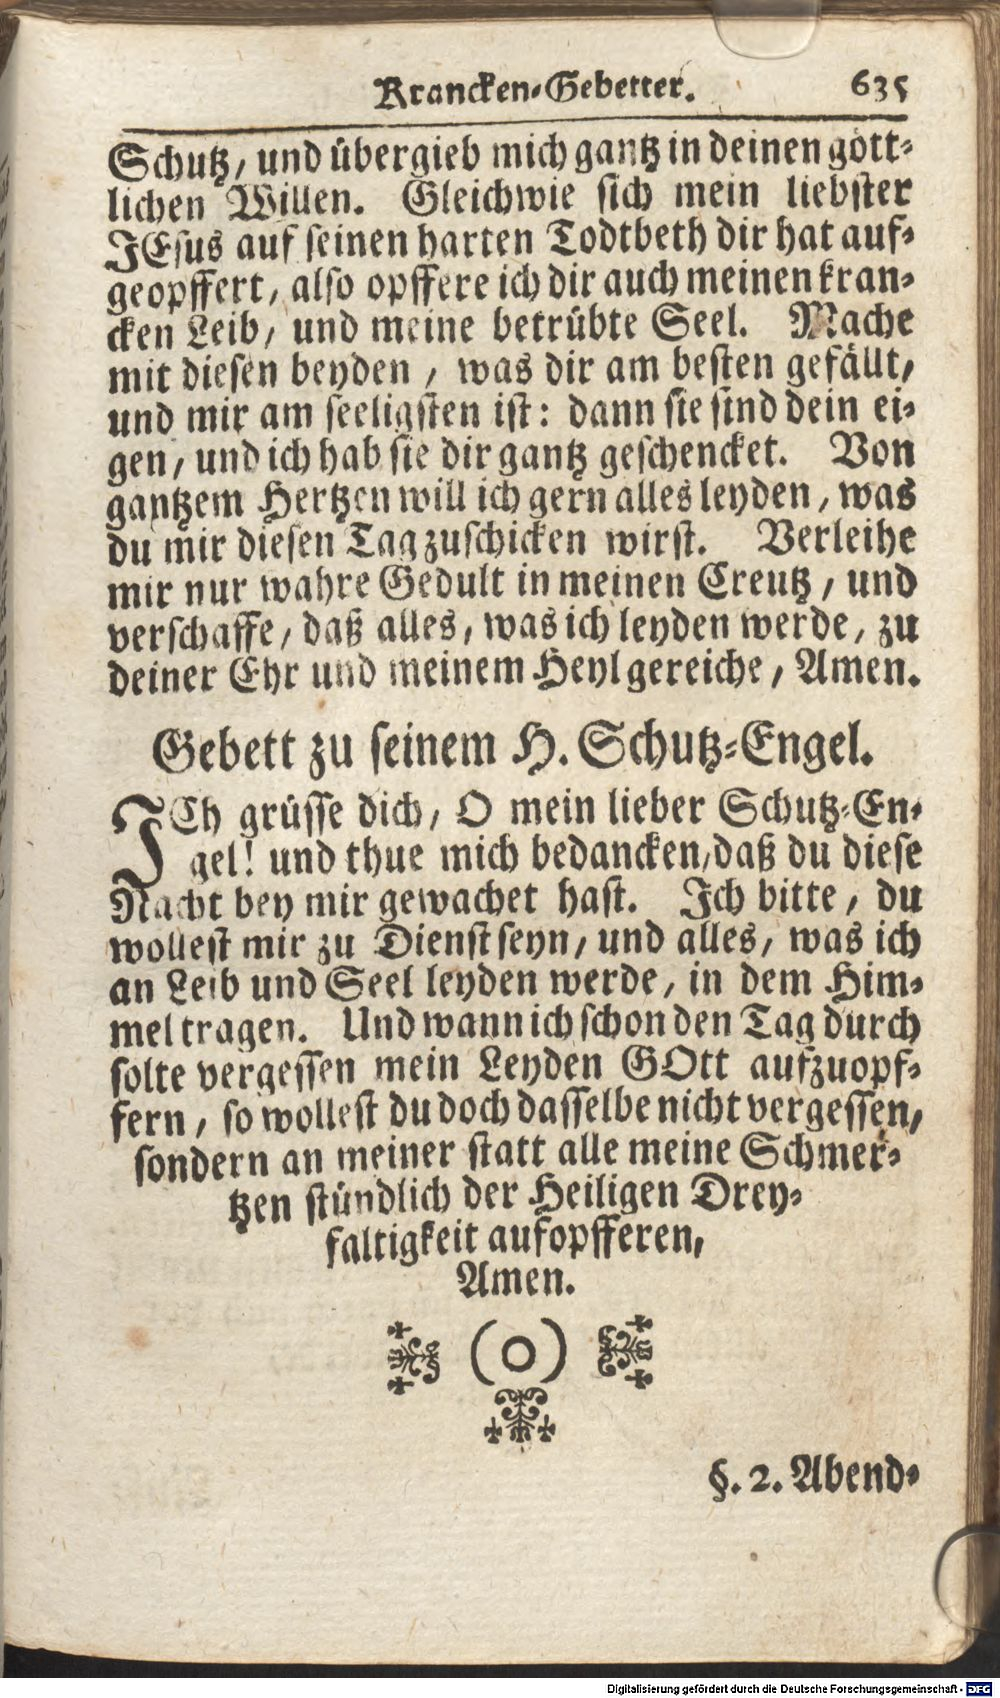 Krancken-Gebetter. 635
Schutz, und übergieb mich gantz in deinen gött-
lichen Willen. Gleichwie sich mein liebster
JEsus auf seinen harten Todtbeth dir hat auf-
geopffert, also opffere ich dir auch meinen kran-
cken Leib, und meine betrübte Seel. Mache
mit diesen beyden, was dir am besten gefällt,
und mir am seeligsten ist: dann sie sind dein ei-
gen, und ich hab sie dir gantz geschencket. Von
gantzem Hertzen will ich gern alles leyden, was
du mir diesen Tag zuschicken wirst. Verleihe
mir nur wahre Gedult in meinen Creutz, und
verschaffe, daß alles, was ich leyden werde, zu
deiner Ehr und meinem Heyl gereiche, Amen.
Gebett zu seinem H. Schutz-Engel.
ICh grüsse dich, O mein lieber Schutz-En-
gel! und thue mich bedancken, daß du diese
Nacht bey mir gewachet hast. Ich bitte, du
wollest mir zu Dienst seyn, und alles, was ich
an Leib und Seel leyden werde, in dem Him-
mel tragen. Und wann ich schon den Tag durch
solte vergessen mein Leyden GOtt aufzuopf-
fern, so wollest du doch dasselbe nicht vergessen,
sondern an meiner statt alle meine Schmer-
tzen stündlich der Heiligen Drey-
faltigkeit aufopfferen,
Amen.
(O)
§. 2. Abend-
Digitalisierung gefördert durch die Deutsche Forschungsgemeinschaft - DFG